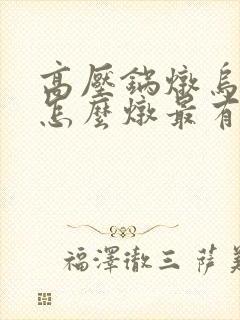 高壓鍋燉烏
怎麼燉最有
福澤徹三 薩美